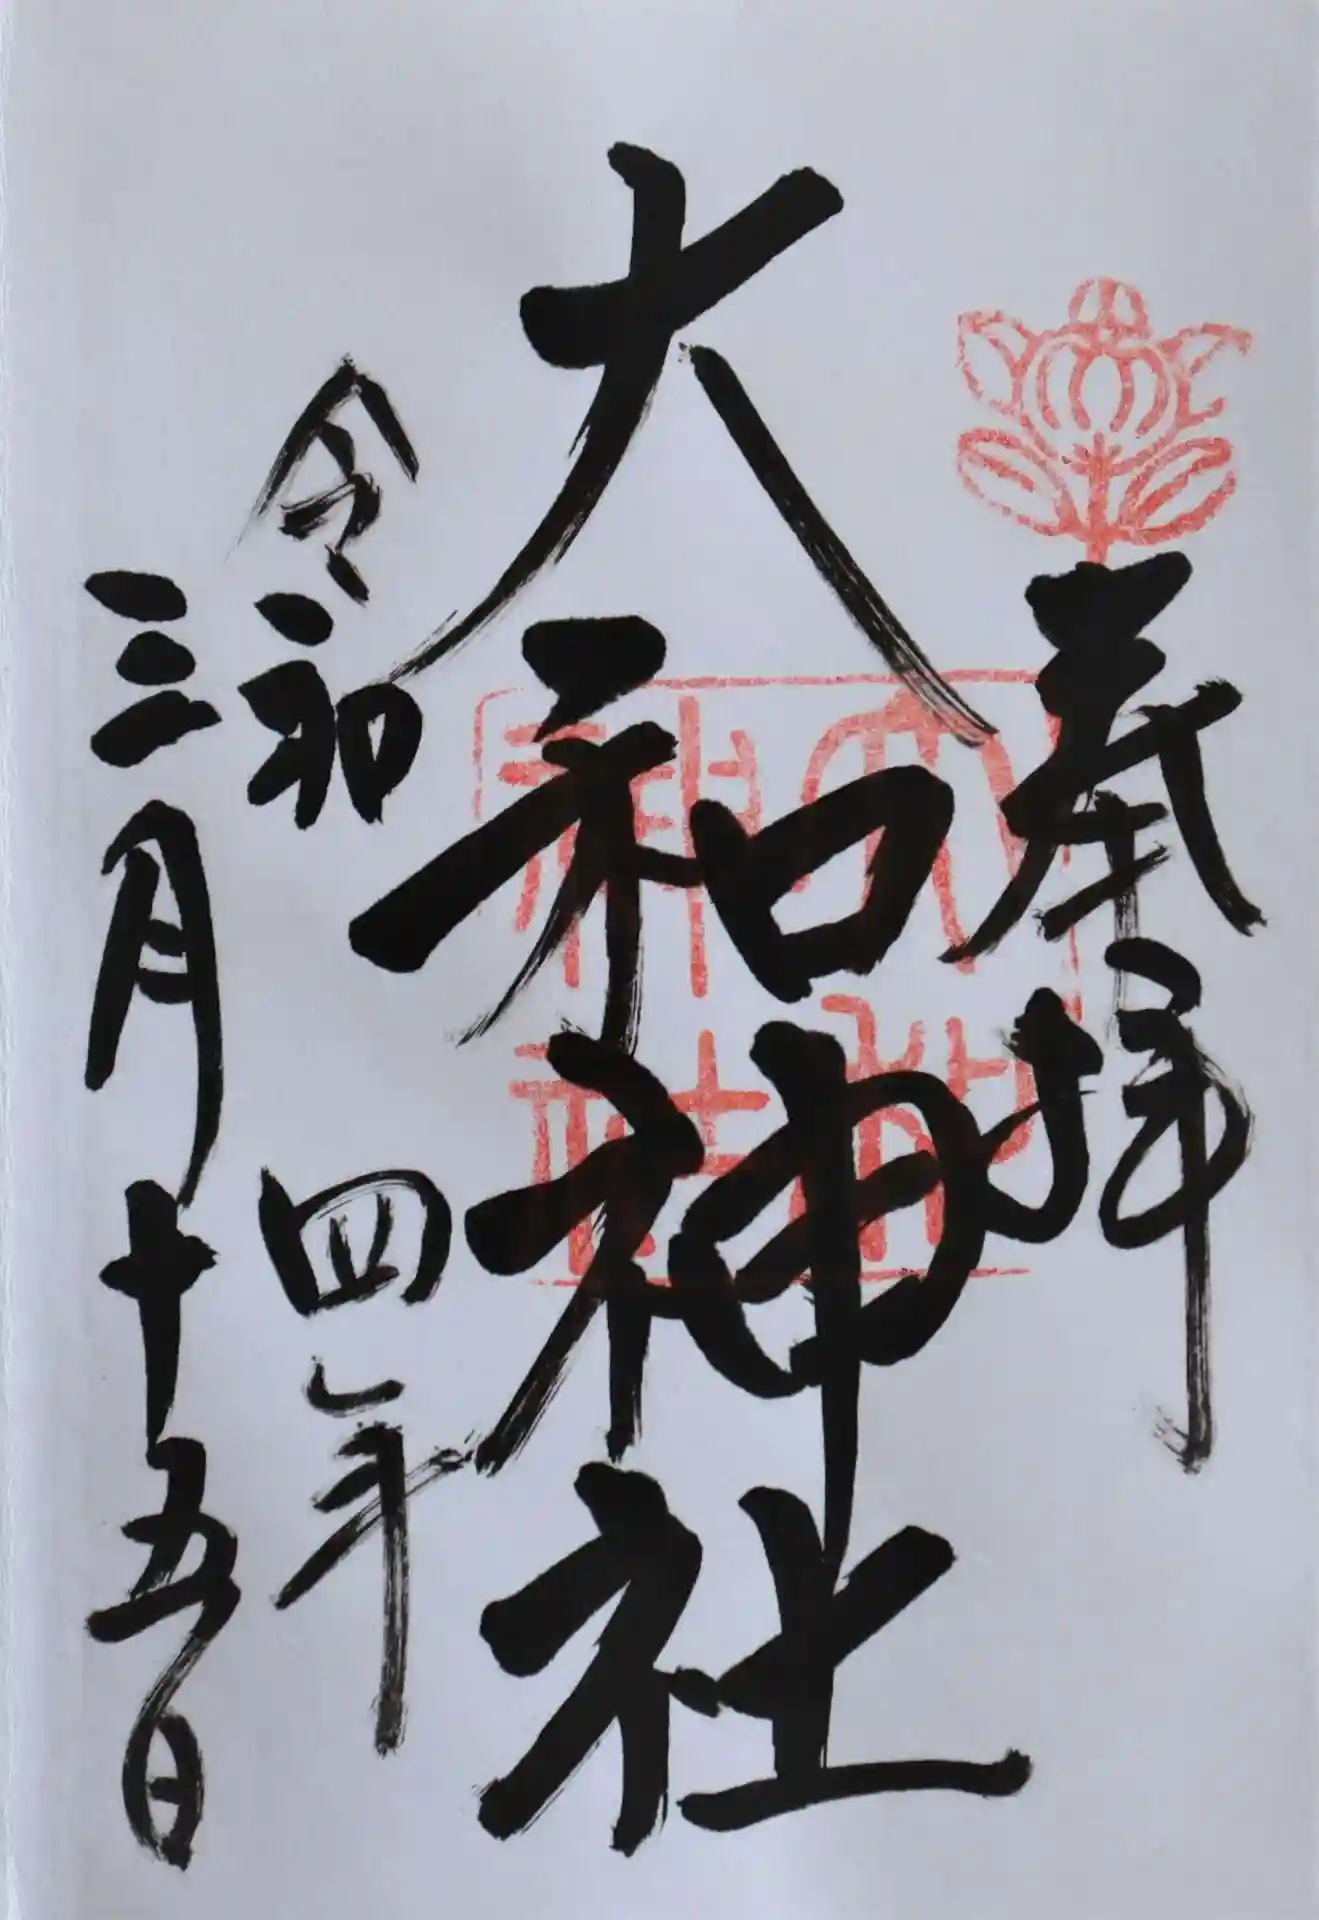 奉拝
大和神社
大和神社
令和四年
三月十五日